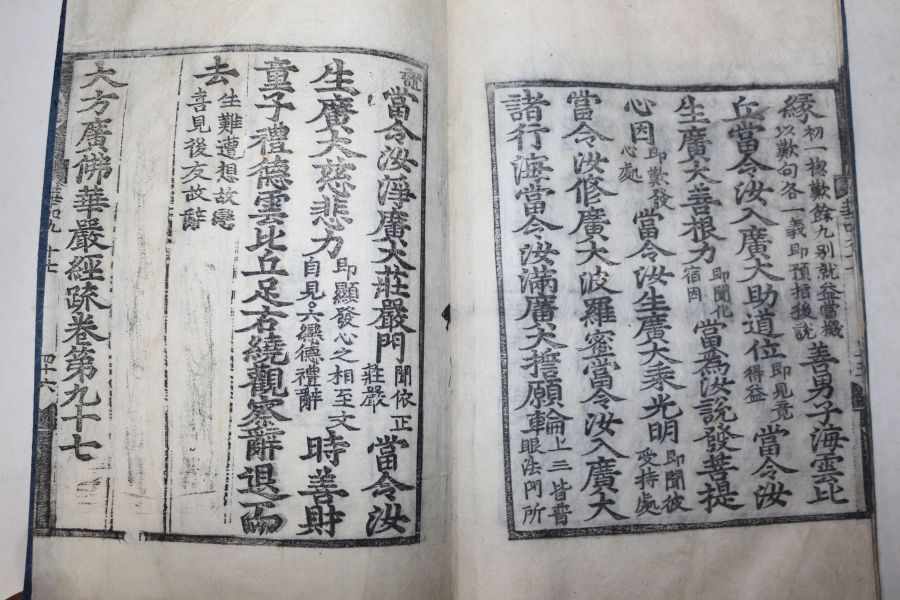 緣初一揔歎餘九別就益當機以歎句各一義即預指後說善男子海雲比
丘當令汝入廣大助道位即見竟得益當令汝
生廣大善根力即聞化宿因當為汝說發菩提
心因即歎發心處當令汝生廣大乘光明即聞彼受持處
當令汝修廣大波羅蜜當令汝入廣大
諸行海當令汝滿廣大誓願輪上三皆普眼法門所
證當令汝淨廣大莊嚴門聞依正莊嚴當令汝
生廣大慈悲力即顯發心之相至文自見○六戀德禮辭時善財
童子禮德雲比丘足右繞觀察辭退而
去生難遭想故戀喜見後友故辭
大方廣佛華嚴經疏卷第九十七
四十六